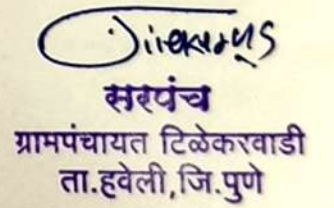 सरपंच
ग्रामपंचायत टिळेकरवाडी
ता.हवेली,जि.पुणे